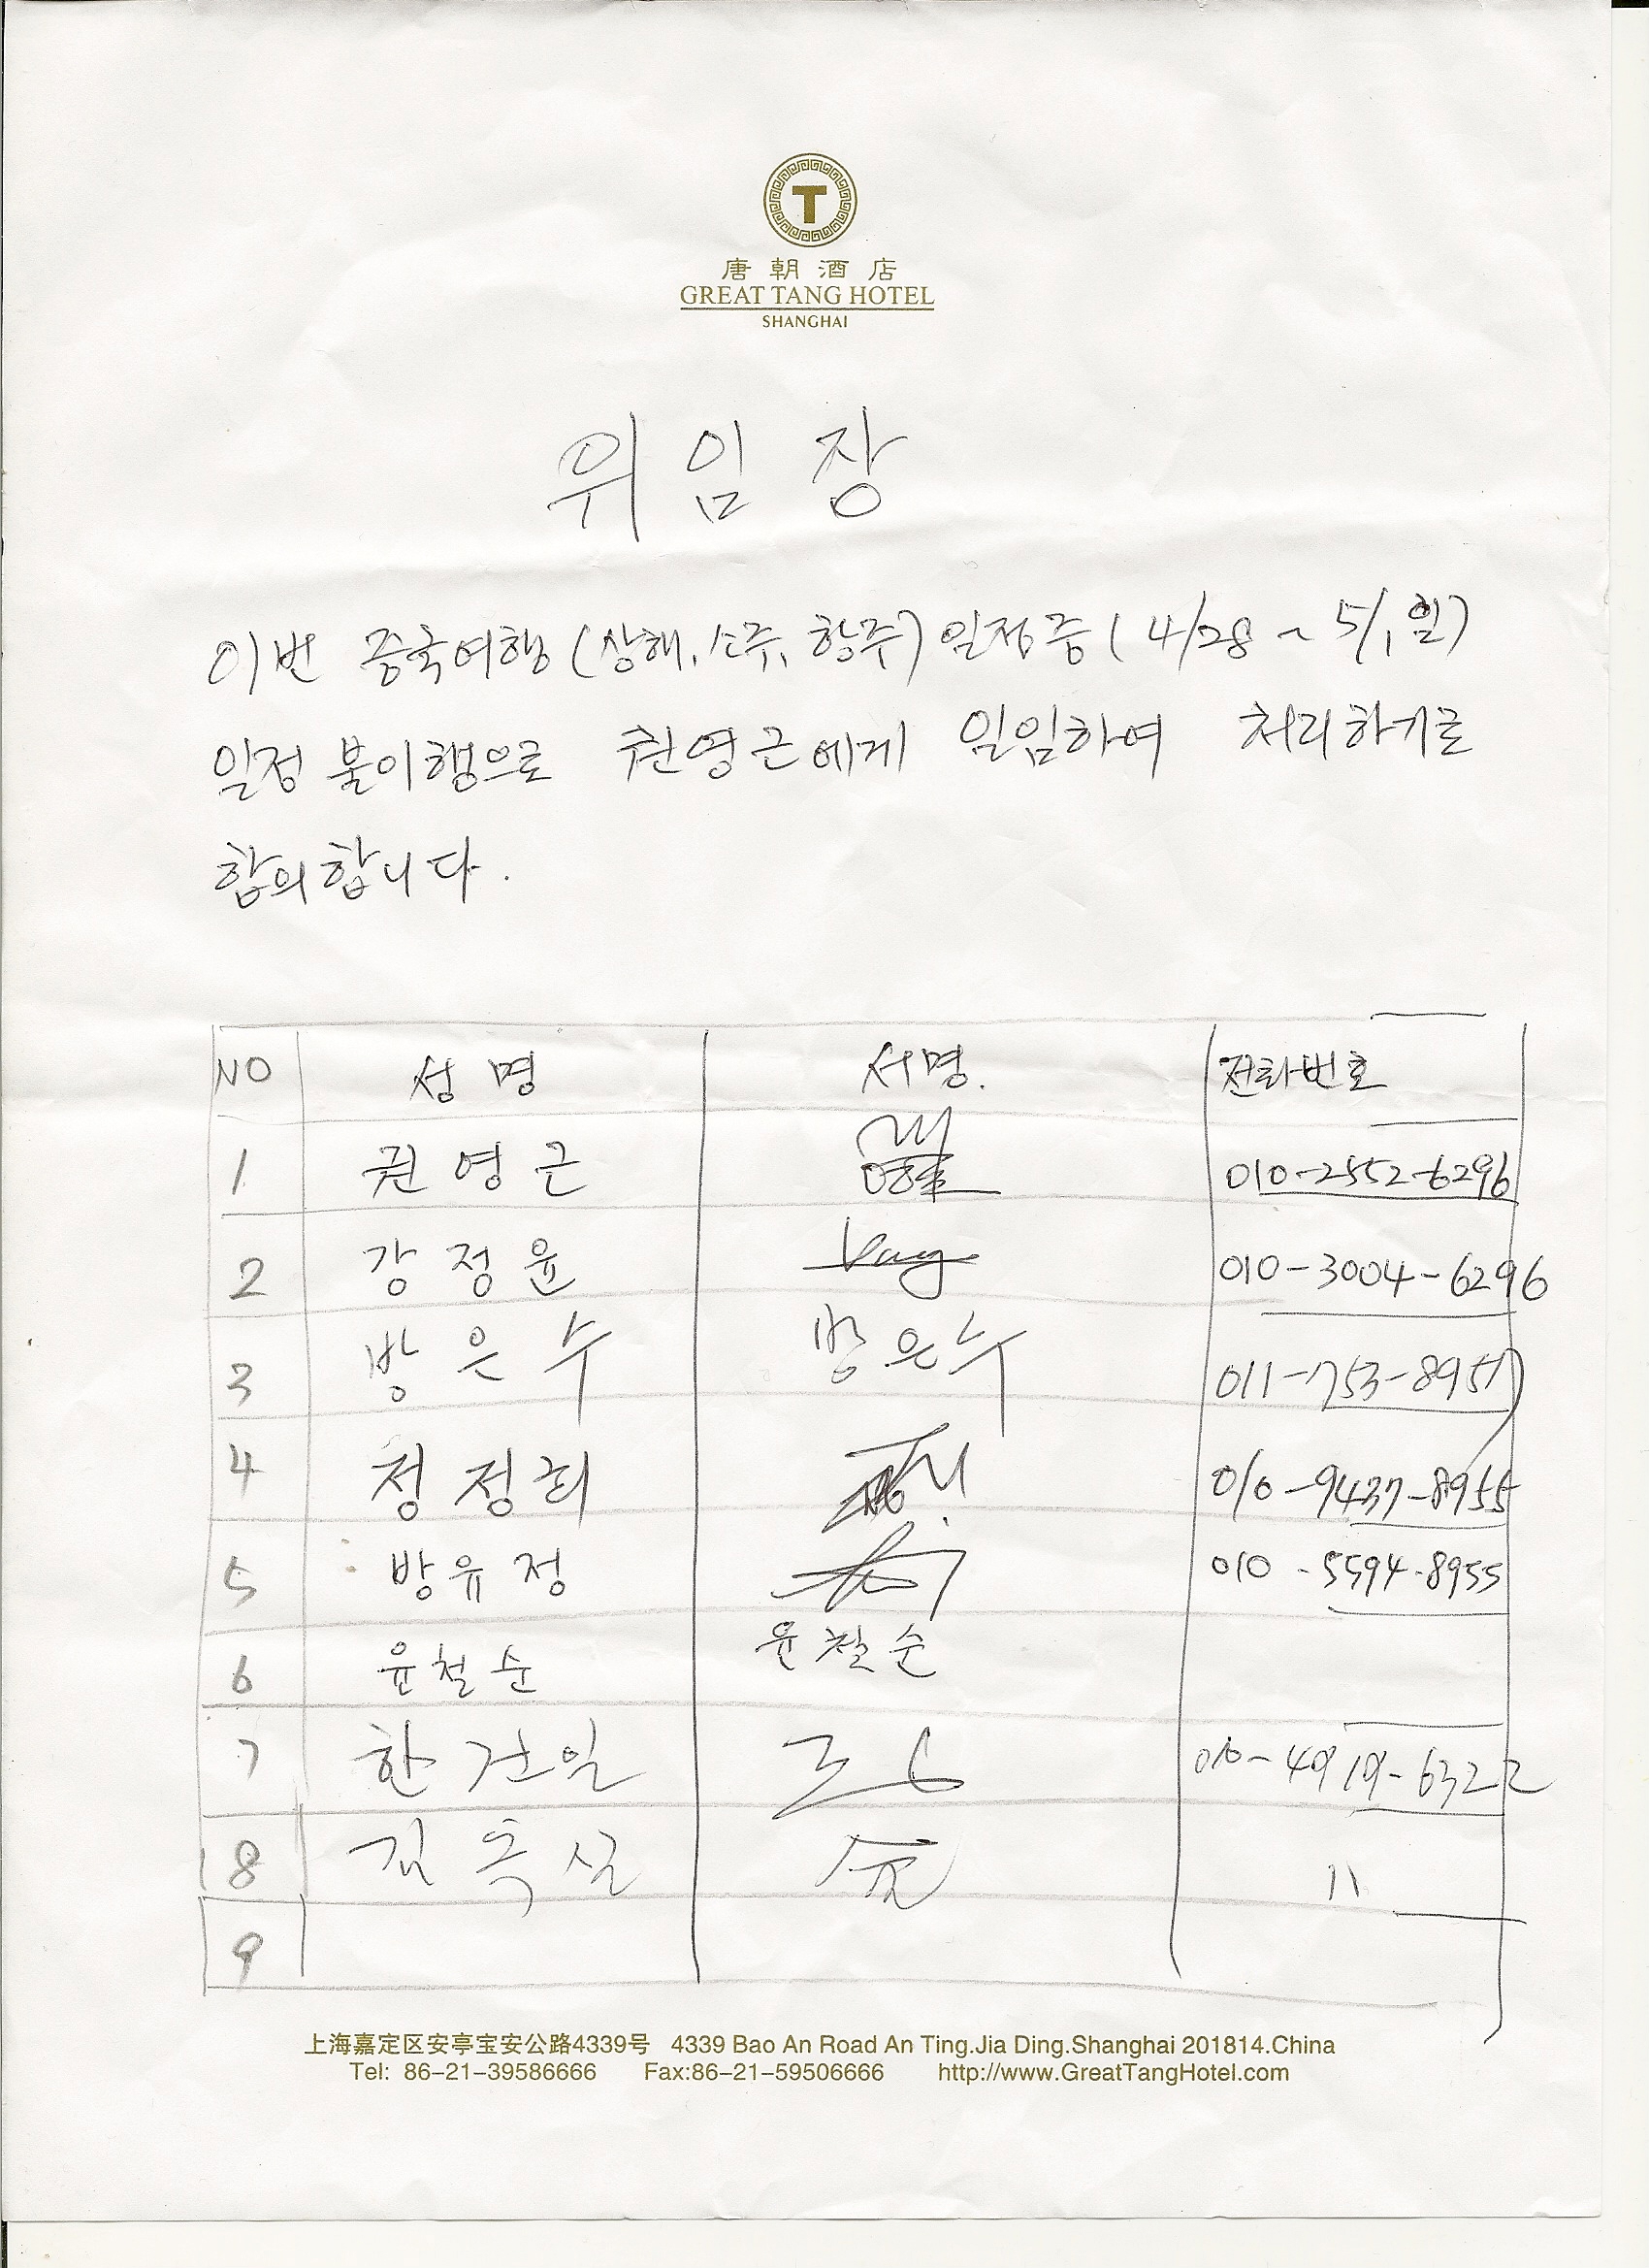 T
唐朝酒店
GREAT TANG HOTEL
SHANGHAI
위임장
이번 중국여행 (상해, 소주, 항주) 일정중 ( 4/28 ~ 5/1일)
일정 불이행으로 권영근에게 일임하여 처리하기로
합의합니다.
NO 성명 서명. 전화번호
1 권영근 010-2552-6296
2 강정윤 Kang 010-3004-6296
3 방은수 방은수 011-753-8957
4 정정희 010-9437-8955
5 방유정 010-5594-8955
6 윤철순 윤철순
7 한건일 010-4919-6322
8 김옥실 "
9
上海嘉定区安亭宝安公路4339号 4339 Bao An Road An Ting.Jia Ding.Shanghai 201814.China
Tel: 86-21-39586666 Fax:86-21-59506666 http://www.GreatTangHotel.com